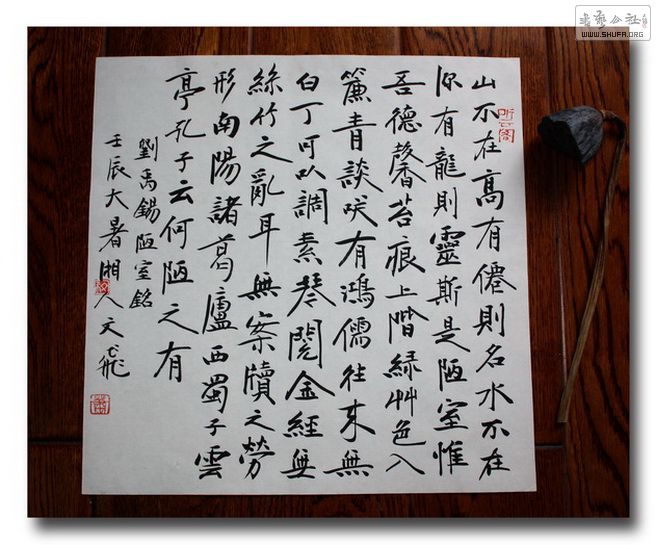 山不在高有僊則名水不在
深有龍則靈斯是陋室惟
吾德馨苔痕上階綠艸色入
簾青談咲有鴻儒往来無
白丁可以調素琴閱金經無
絲竹之亂耳無案牘之勞
形南陽諸葛廬西蜀子雲
亭孔子云何陋之有
劉禹錫陋室銘
壬辰大暑湘人文飛
書藝公社
WWW.SHUFA.ORG